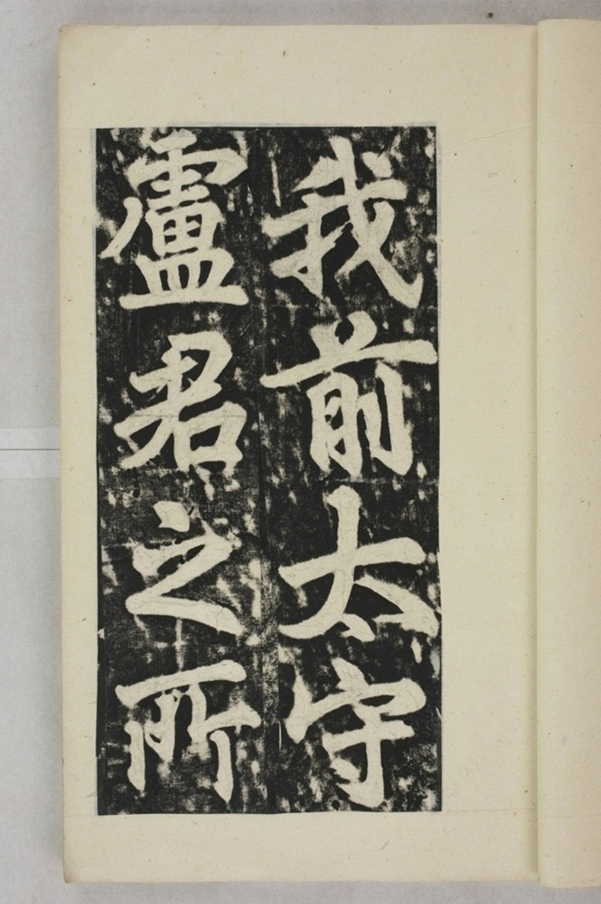 我前太守
盧君之所